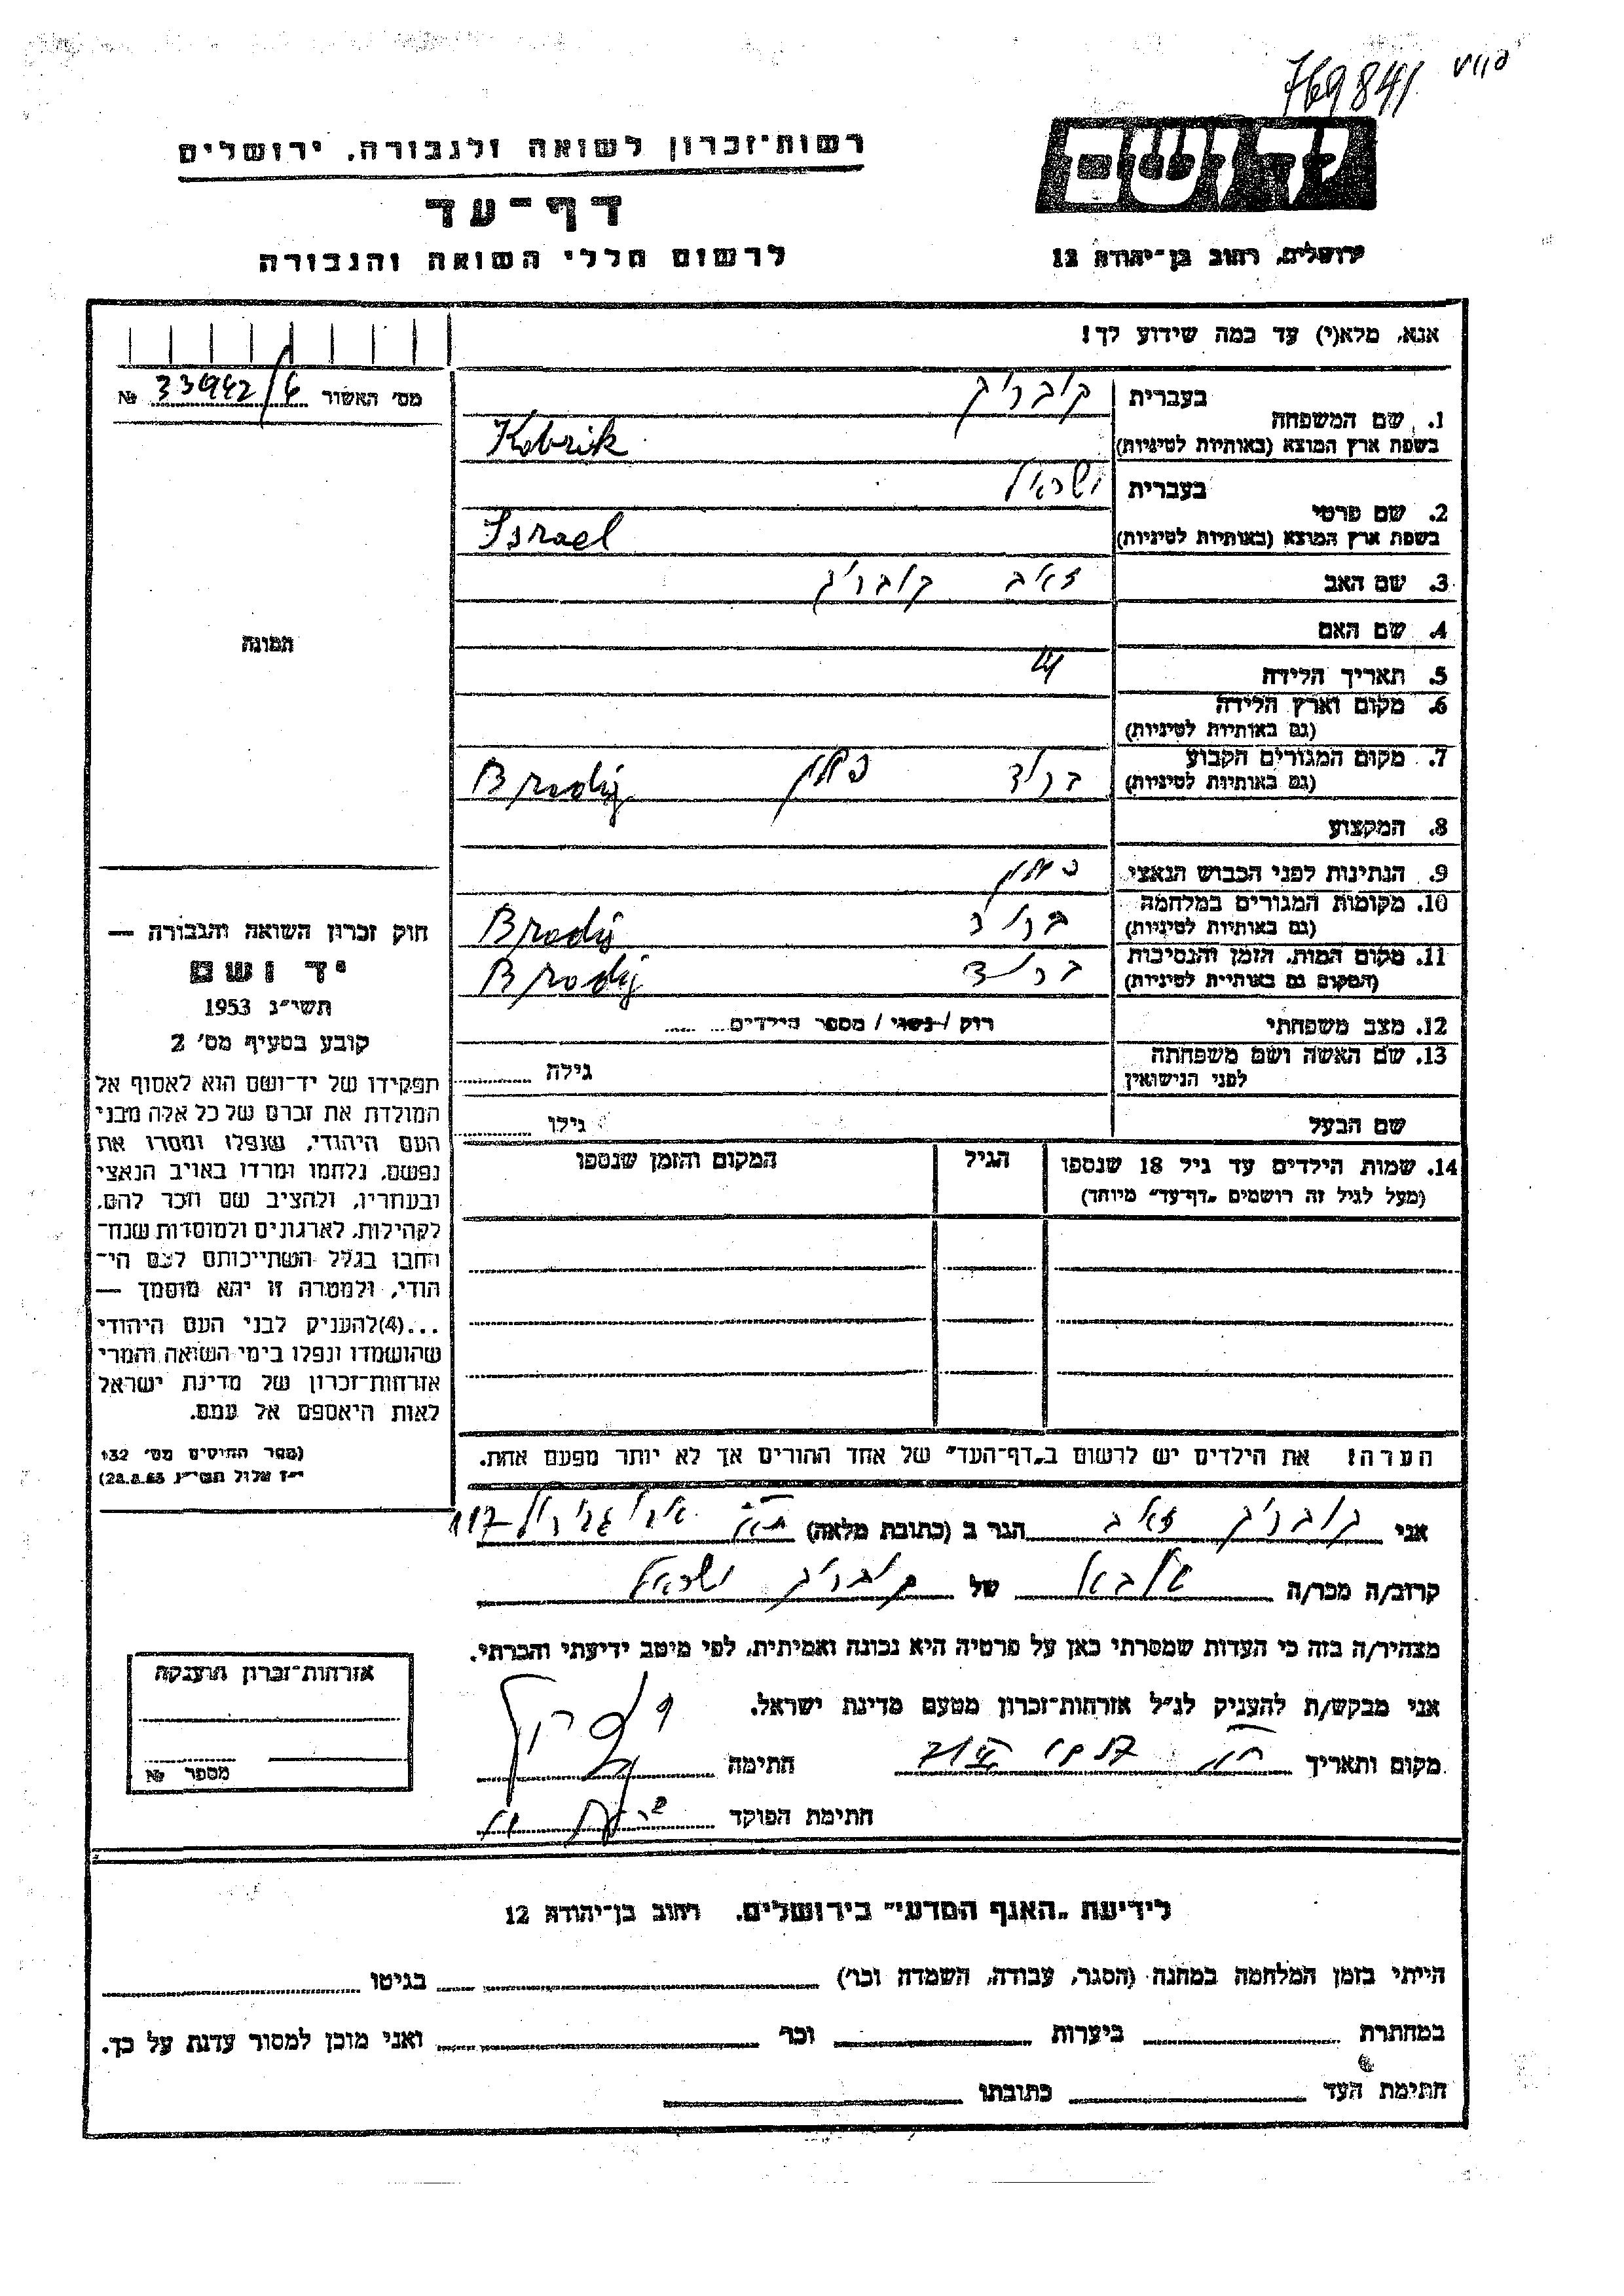 769841
רשות־זכרון לשואה ולגבורה, ירושלים
יד ושם
דף־עד
לרשום חללי השואה והגבורה
ירושלים, רחוב בן־יהודה 12
אנא, מלא(י) עד כמה שידוע לך!
מס׳ האשור 33942/6 №
1. שם המשפחה
בעברית קובריק
בשפת ארץ המוצא (באותיות לטיניות) Kobrik
2. שם פרטי
בעברית ישראל
בשפת ארץ המוצא (באותיות לטיניות) Israel
3. שם האב זאב קובריק
4. שם האם
5. תאריך הלידה
6. מקום וארץ הלידה
(גם באותיות לטיניות)
7. מקום המגורים הקבוע ברוד פולין Brodij
(גם באותיות לטיניות)
8. המקצוע
9. הנתינות לפני הכבוש הנאצי פולין
10. מקומות המגורים במלחמה ברוד Brodij
(גם באותיות לטיניות)
11. מקום המות, הזמן והנסיבות ברוד Brodij
(המקום גם באותיית לטיניות)
12. מצב משפחתי רוק / נשוי / מספר הילדים
13. שם האשה ושם משפחתה גילה
לפני הנישואין
שם הבעל גילו
14. שמות הילדים עד גיל 18 שנספו הגיל המקום והזמן שנספו
(מעל לגיל זה רושמים „דף־עד״ מיוחד)
הערה! את הילדים יש לרשום ב„דף־העד״ של אחד ההורים אך לא יותר מפעם אחת.
תמונה
חוק זכרון השואה והגבורה —
יד ושם
תשי״ג 1953
קובע בסעיף מס׳ 2
תפקידו של יד־ושם הוא לאסוף אל
המולדת את זכרם של כל אלה מבני
העם היהודי, שנפלו ומסרו את
נפשם, נלחמו ומרדו באויב הנאצי
ובעוזריו, ולהציב שם וזכר להם,
לקהילות, לארגונים ולמוסדות שנח־
רבו בגלל השתייכותם לעם הי־
הודי, ולמטרה זו יהא מוסמך —
...(4)להעניק לבני העם היהודי
שהושמדו ונפלו בימי השואה והמרי
אזרחות־זכרון של מדינת ישראל
לאות היאספם אל עמם.
(ספר החוקים מס׳ 132
י״ז אלול תשי״ג 28.8.53)
אני קובריק זאב הגר ב (כתובת מלאה) ת״א אבן גבירול 117
קרוב/ה מכר/ה של קובריק ישראל
מצהיר/ה בזה כי העדות שמסרתי כאן על פרטיה היא נכונה ואמיתית, לפי מיטב ידיעתי והכרתי.
אני מבקש/ת להעניק לנ״ל אזרחות־זכרון מטעם מדינת ישראל.
מקום ותאריך חתימה
חתימת הפוקד
אזרחות־זכרון הוענקה
מספר №
לידיעת „האגף המדעי״ בירושלים, רחוב בן־יהודה 12
הייתי בזמן המלחמה במחנה (הסגר, עבודה, השמדה וכו׳) בגיטו
במחתרת ביערות וכו׳ ואני מוכן למסור עדות על כך.
חתימת העד כתובתו